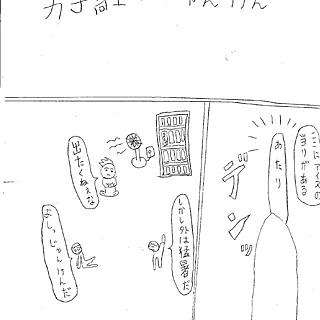 ゃんけん
ここにアイスの
当りがある
あたり
デンッ
しかし外は猛暑だ
出たくねぇな
よしっじゃんけんだ